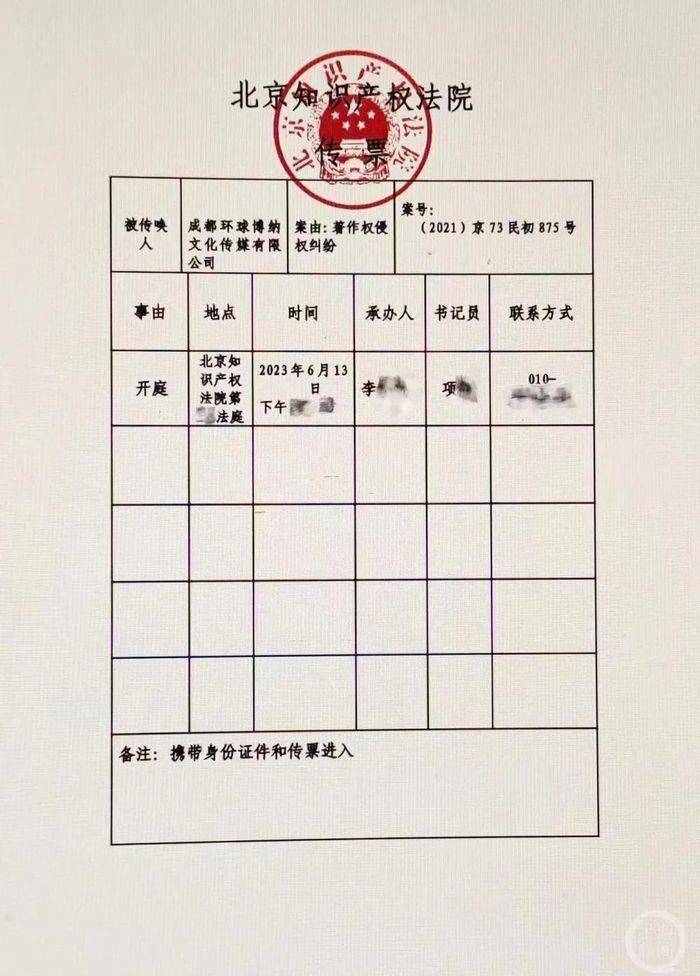 北京知识产权法院
传票
被传唤
人
成都环球博纳
文化传媒有限
公司
案由：著作权侵
权纠纷
案号：
（2021）京 73 民初 875 号
事由
地点
时间
承办人
书记员
联系方式
开庭
北京知
识产权
法院第
法庭
2023 年 6 月 13
日
下午
李
项
010-
备注：携带身份证件和传票进入
北京知识产权法院